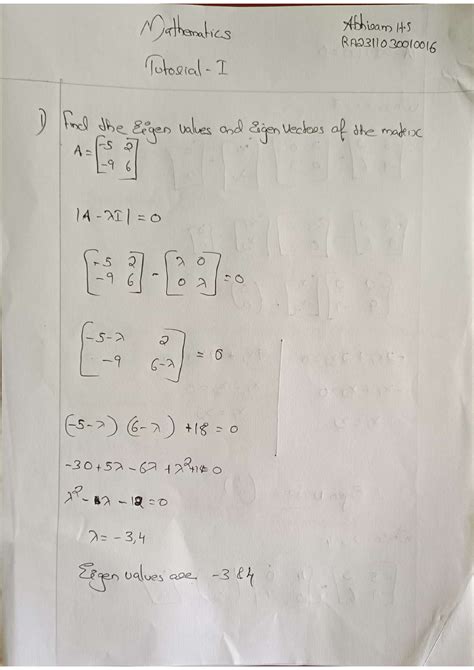 Mathematics
Abhiram H S
RA2311030010016
Tutorial - I
1) Find the Eigen values and Eigen Vectors of the matrix
A = [-5 2
-9 6]
|A - λI| = 0
[-5 2
-9 6] - [λ 0
0 λ] = 0
[-5-λ 2
-9 6-λ] = 0
(-5-λ) (6-λ) + 18 = 0
-30 + 5λ - 6λ + λ² + 18 = 0
λ² - λ - 12 = 0
λ = -3, 4
Eigen values are -3 & 4